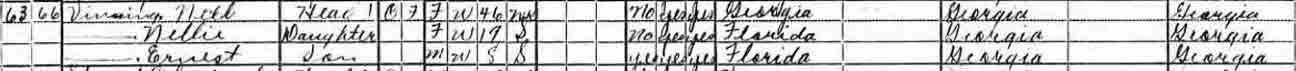 63 66 Vinning Nell Head 1 O F F W 46 No yes yes Georgia Georgia Georgia
Nellie Daughter F W 17 S No yes yes Florida Georgia Georgia
Ernest Son M W 8 S yes yes yes Florida Georgia Georgia